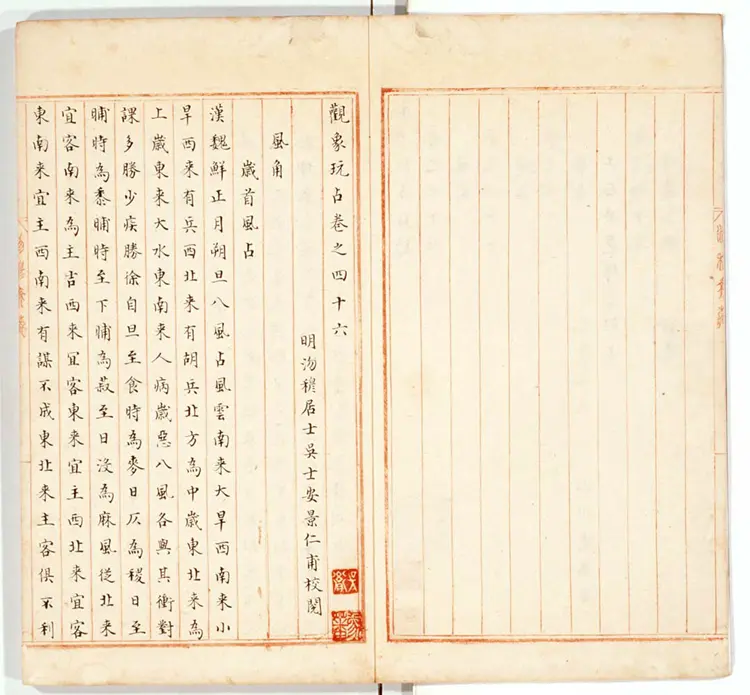 觀象玩占卷之四十六
明沕穆居士吳士安景仁甫校閱
風角
歲首風占
漢魏鮮正月朔旦八風占風雲南来大旱西南来小
旱西来有兵西北来有胡兵北方為中歲東北来為
上歲東来大水東南来人病歲惡八風各與其衝對
課多勝少疾勝徐自旦至食時為麥日仄為稷日至
晡時為黍晡時至下晡為菽至日沒為麻風從北来
宜客南来為主吉西来宜客東来宜主西北来宜客
東南来宜主西南来有謀不成東北来主客俱不利